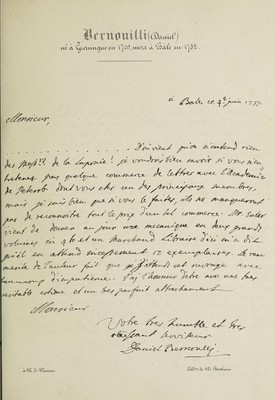 Bernouilli (Daniel)
né à Groningue en 1700, mort à Bâle en 1782.
à Bale ce 4e juin 1737.
Monsieur,
D'où vient qu'on n'entend rien
des Messrs de la Laponie? je voudrois bien savoir si vous n'en-
tretenez pas quelque commerce de lettres avec l'Académie
de Petersb. dont vous etes un des principaux membres,
mais je suis bien que si vous le faites, ils ne manqueront
pas de reconnoitre tout le prix d'un tel commerce. Mr. Euler
vient de donner au jour une mecanique en deux grands
volumes in 4to et un Marchand Libraire d'ici m'a dit
qu'il en attend incessamment 12 exemplaires. Le rare
merite de l'auteur fait que j'attend cet ouvrage avec
beaucoup d'impatience. J'ai l'honneur d'etre avec une tres
veritable estime et un tres parfait attachement
Monsieur
Votre tres humble et tres
obeissant serviteur
Daniel Bernoulli